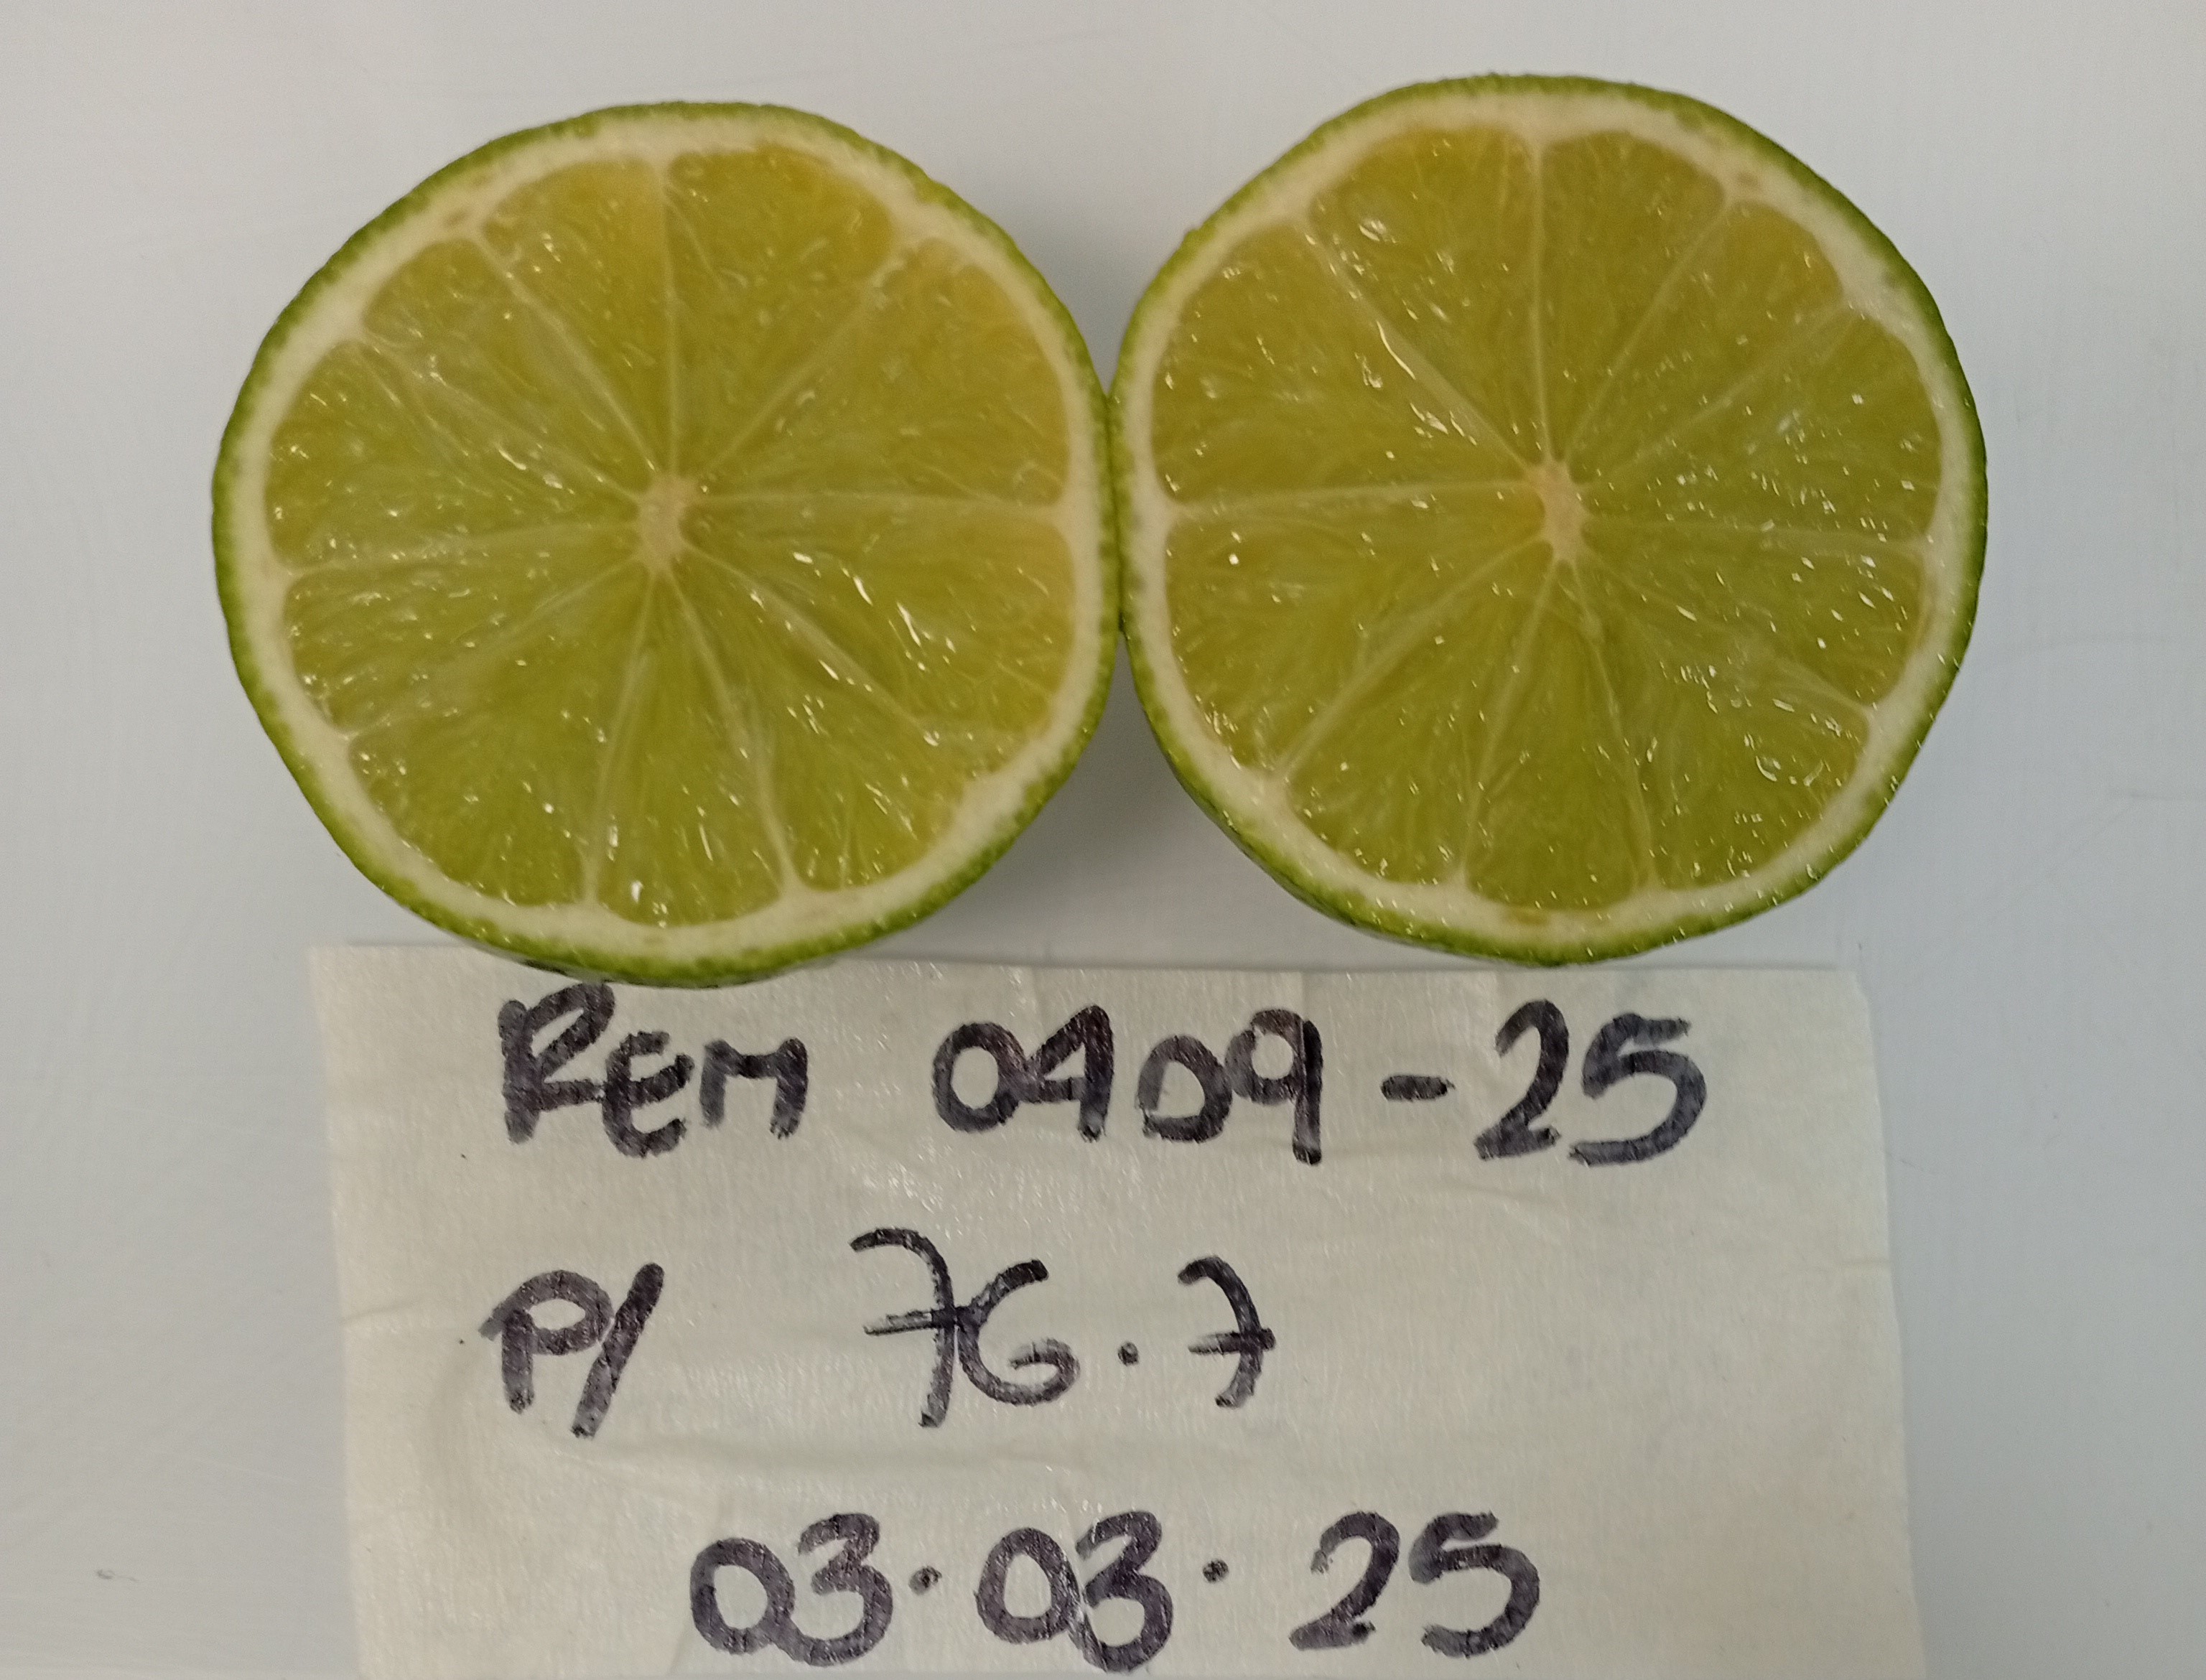 REM 0409-25
P/ 76.7
03.03.25